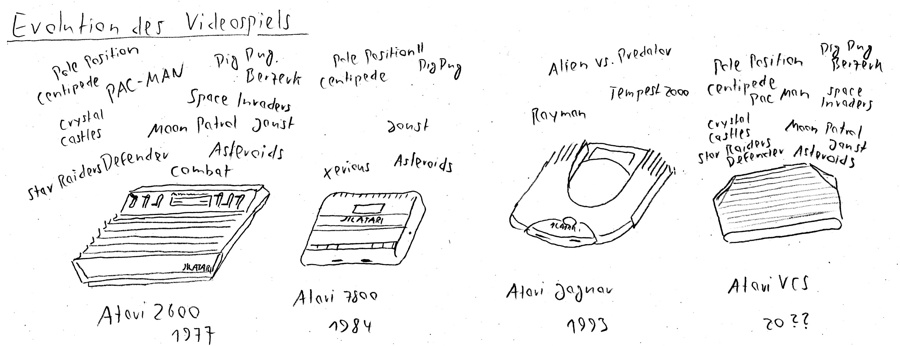 Evolution des Videospiels
Pole Position
Centipede
PAC-MAN
Dig Dug
Berzerk
Space Invaders
Crystal
Castles
Moon Patrol
Joust
Star Raiders
Defender
Asteroids
Combat
ATARI
Atari 2600
1977
Pole Position II
Centipede
Dig Dug
Joust
Xevious
Asteroids
ATARI
Atari 7800
1984
Alien vs. Predator
Tempest 2000
Rayman
ATARI
Atari Jaguar
1993
Pole Position
Dig Dug
Berzerk
Centipede
Pac Man
Space
Invaders
Crystal
Castles
Moon Patrol
Joust
Star Raiders
Defender
Asteroids
Atari VCS
20??